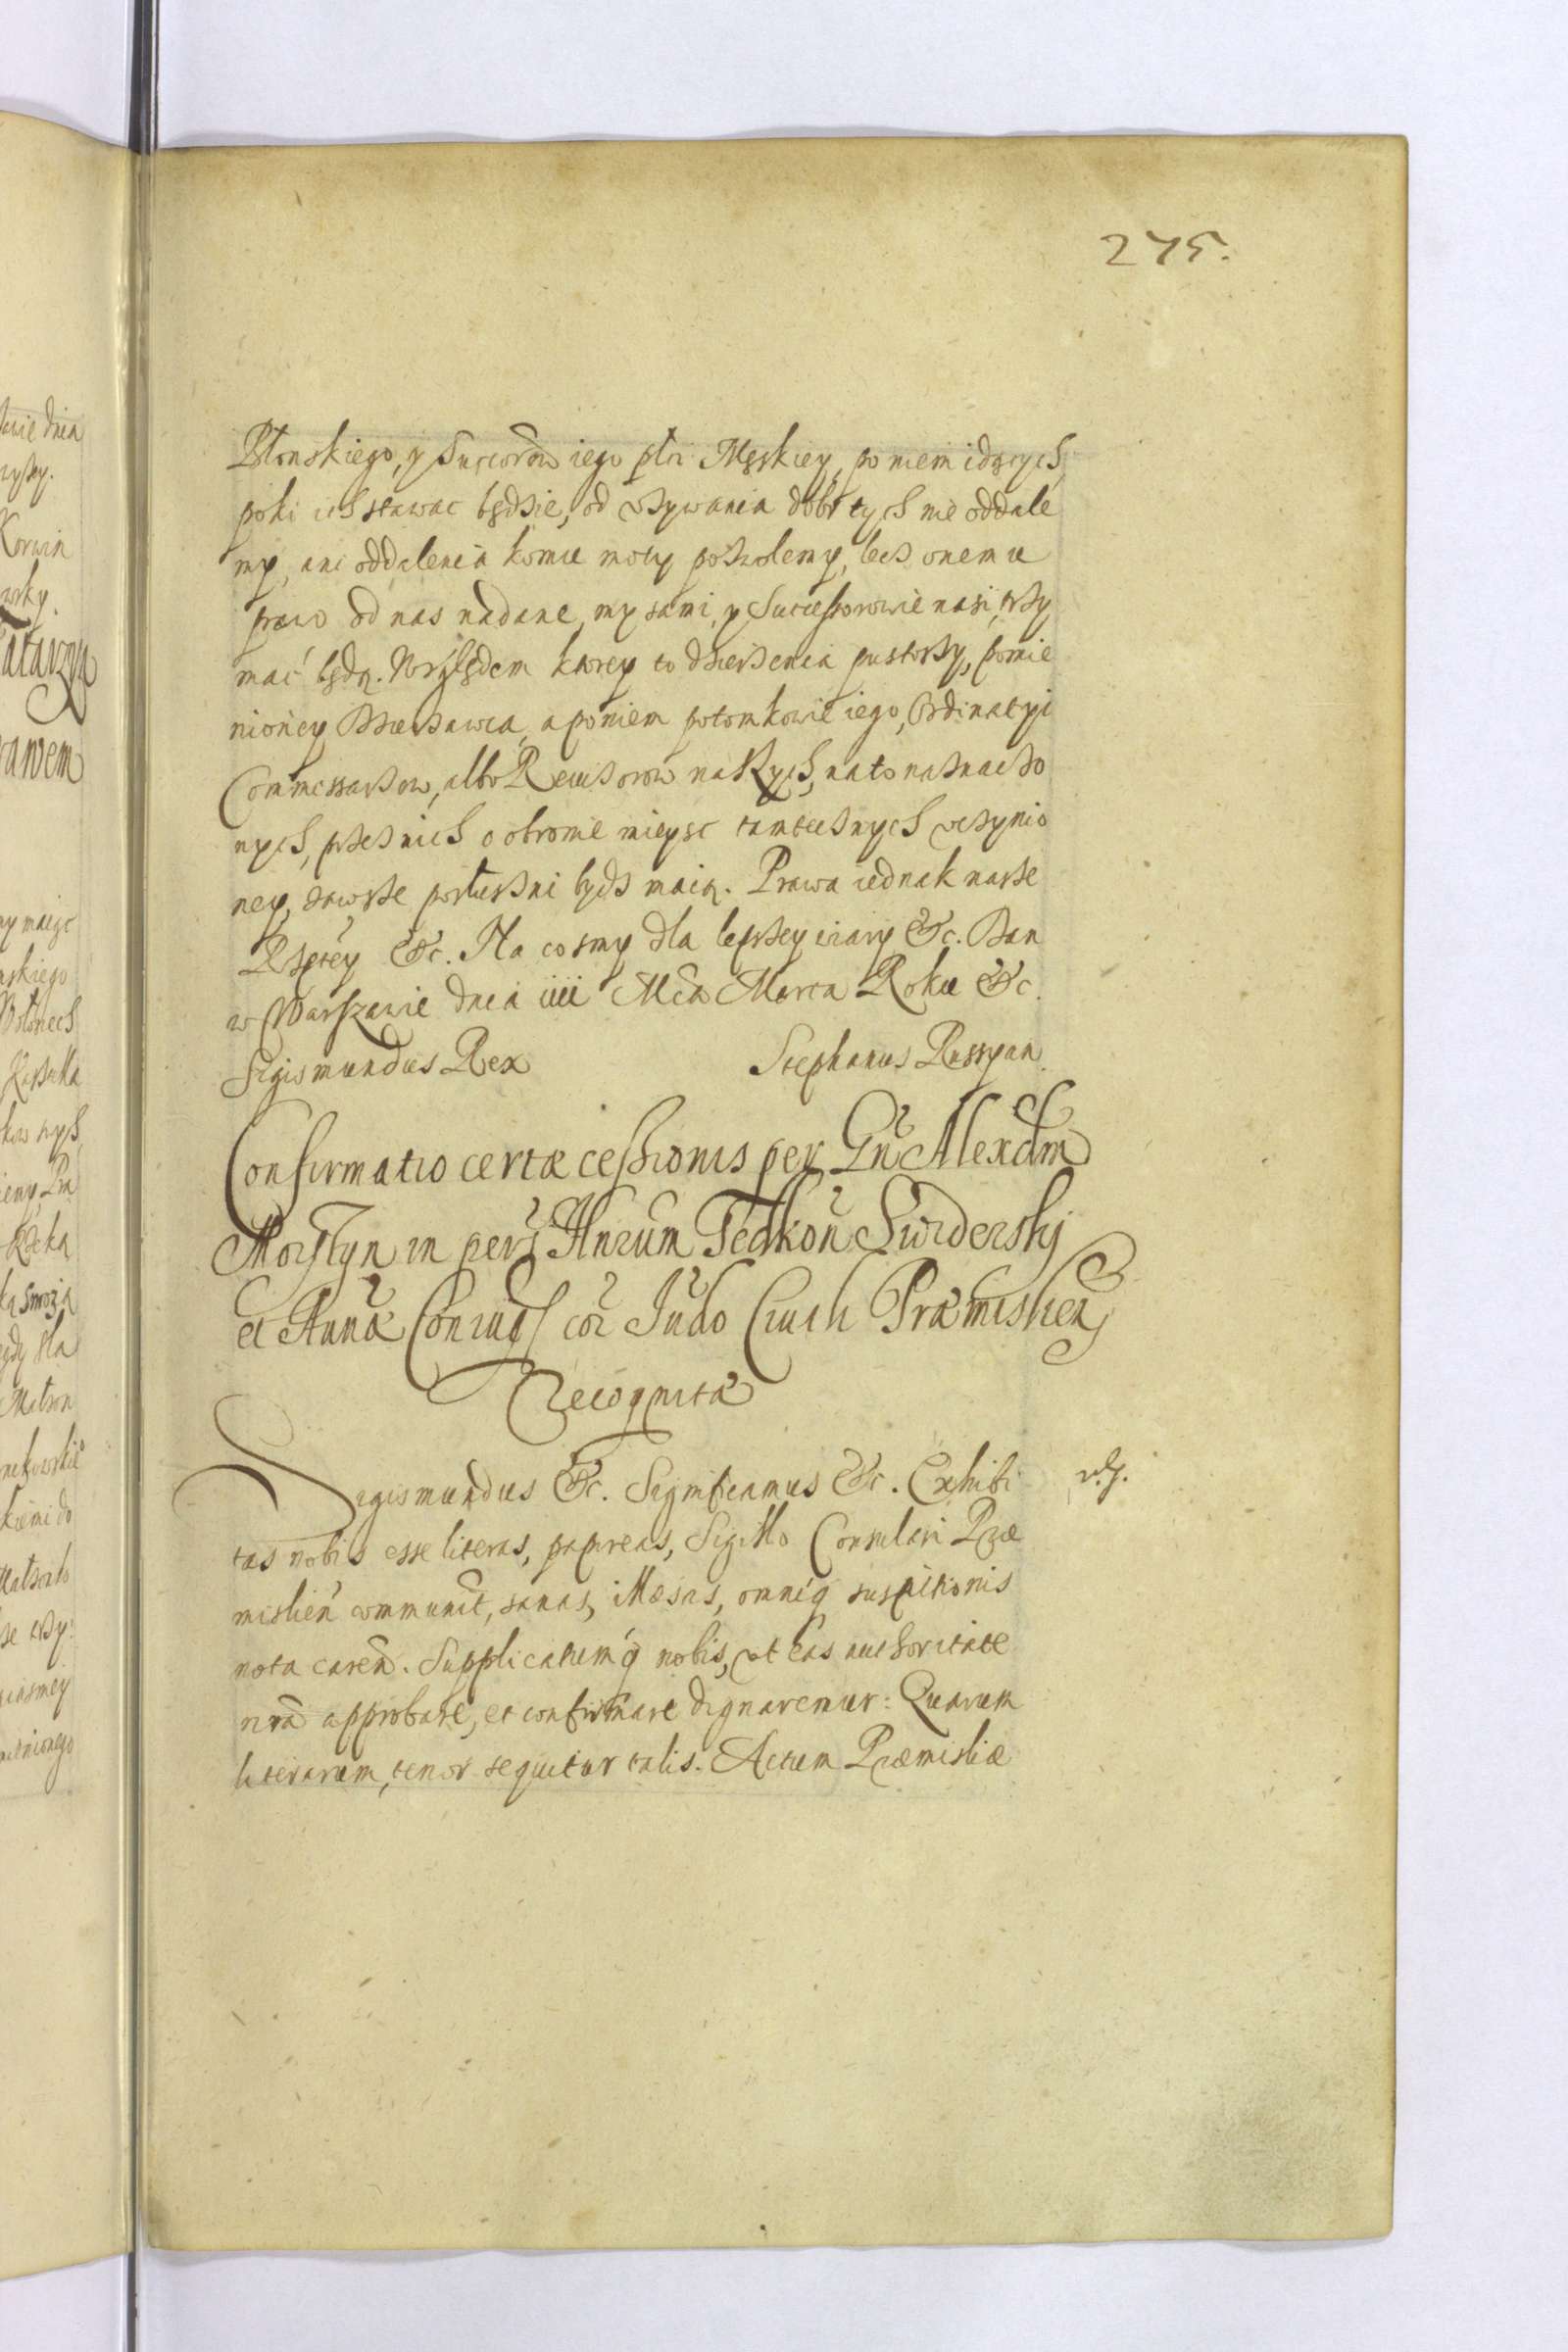 275.
Błonskiego, y Succorów iego płci Męskiey, po niem idących,
poki ich stawac będzie, od używania dobr tych nie oddale
my, ani oddalenia komu mocy pozwolemy, lecz onemu
prawo od nas nadane, my sami, y Successorowie nasi, trzy
mać będą. Względem ktorey to dzierżenia pustoszy, pomie
nioney Dzierżawca, a poniem potomkowie iego, Ordinatyi
Commissarzow, albo Rewizorow naszych, na to naznaczo
nych, przez nich o obronie mieysc tamtecznych uczynio
ney, zawsze posłuszni bydz maią. Prawa iednak nasze
Rzptey &c. Na co smy dla lepszey wiary &c. Dan
w Warszawie dnia iiii Mca Marca Roku &c.
Sigismundus Rex Stephanus Russyan.
Confirmatio certæ cessionis per Gn Alexdm
Morstyn in pers Hnrum Fedkon Swiderskj
et Annæ Coniugs cor Judo Ciuili Præmislien
recognitæ
Sigismundus &c. Significamus &c. Exhibi
tas nobis esse literas, papireas, Sigillo Consulari Præ
mislien communit, sanas, illæsas, omniq suspitionis
nota caren. Supplicatumq nobis, ut eas authoritate
nra approbare, et confirmare dignaremur: Quarum
literarum, tenor sequitur talis. Actum Præmisliæ